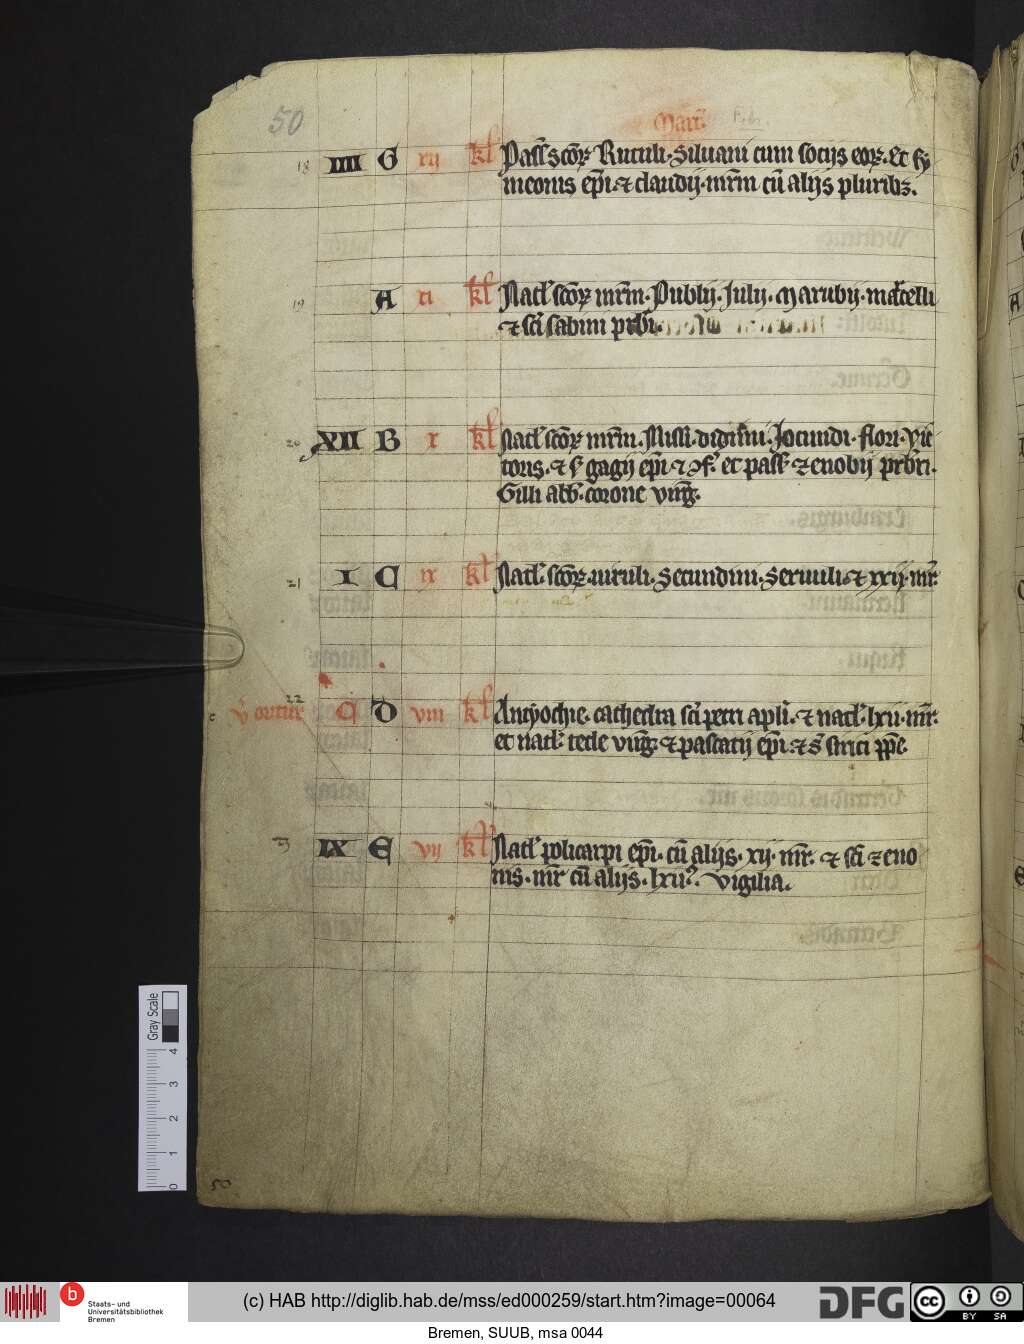 50
Marcˀ Febr.
18 IIII G xij kl Pass̄ scōꝝ Rutuli. Siluani cum socijs eoꝝ. Et sy
meonis ep̄i. ⁊ claudij. mr̄m cū alijs pluribꝫ.
19 A xi kl Natł scōꝝ mr̄m. Publij. Julij. Marubij. marcelli
⁊ sc̄i sabini prb̄i.
20 XII B x kl Natł scōꝝ mr̄m. Nisli. didimi. Jocundi. flori. vic
toris. ⁊ s̄ gagij ep̄i ⁊ ɔf. et pass̄ ⁊ zenobij prb̄ri.
Gilli abb̄. corone virḡ.
21 I C ix kl Natł. scōꝝ. uiruli. Secundini. Seruuli. ⁊ xxij. mr̄.
22 v̄ oritur D viii kl Antyochie. cathedra sc̄i petri apłi. ⁊ natł. lxii. mr̄.
et natł. tecle virḡ. ⁊ pascatij ep̄i. ⁊ s̄ sirici pp̄e.
23 IX E vij kl Natł policarpi ep̄i. cū alijs. xij. mr̄. ⁊ sc̄i zeno
nis. mr̄ cū alijs. lxii. vigilia.
50
Gray Scale
4
3
2
1
0
Staats- und
Universitätsbibliothek
Bremen
(c) HAB http://diglib.hab.de/mss/ed000259/start.htm?image=00064
DFG
CC BY SA
Bremen, SUUB, msa 0044